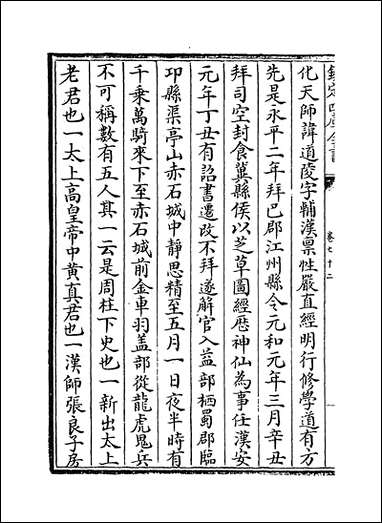 欽定四庫全書
卷七十二
化天師諱道陵字輔漢禀性嚴直經明行修學道有方
先是永平二年拜巴郡江州縣令元和元年三月辛丑
拜司空封食冀縣侯以芝草圖經歷神仙為事任漢安
元年丁丑有詔書遷改不拜遂解官入益部栖蜀郡臨
邛縣渠亭山赤石城中靜思精至五月一日夜半時有
千乘萬騎來下至赤石城前金車羽盖部從龍虎鬼兵
不可稱數有五人其一云是周柱下史也一新出太上
老君也一太上高皇帝中黃真君也一漢師張良子房